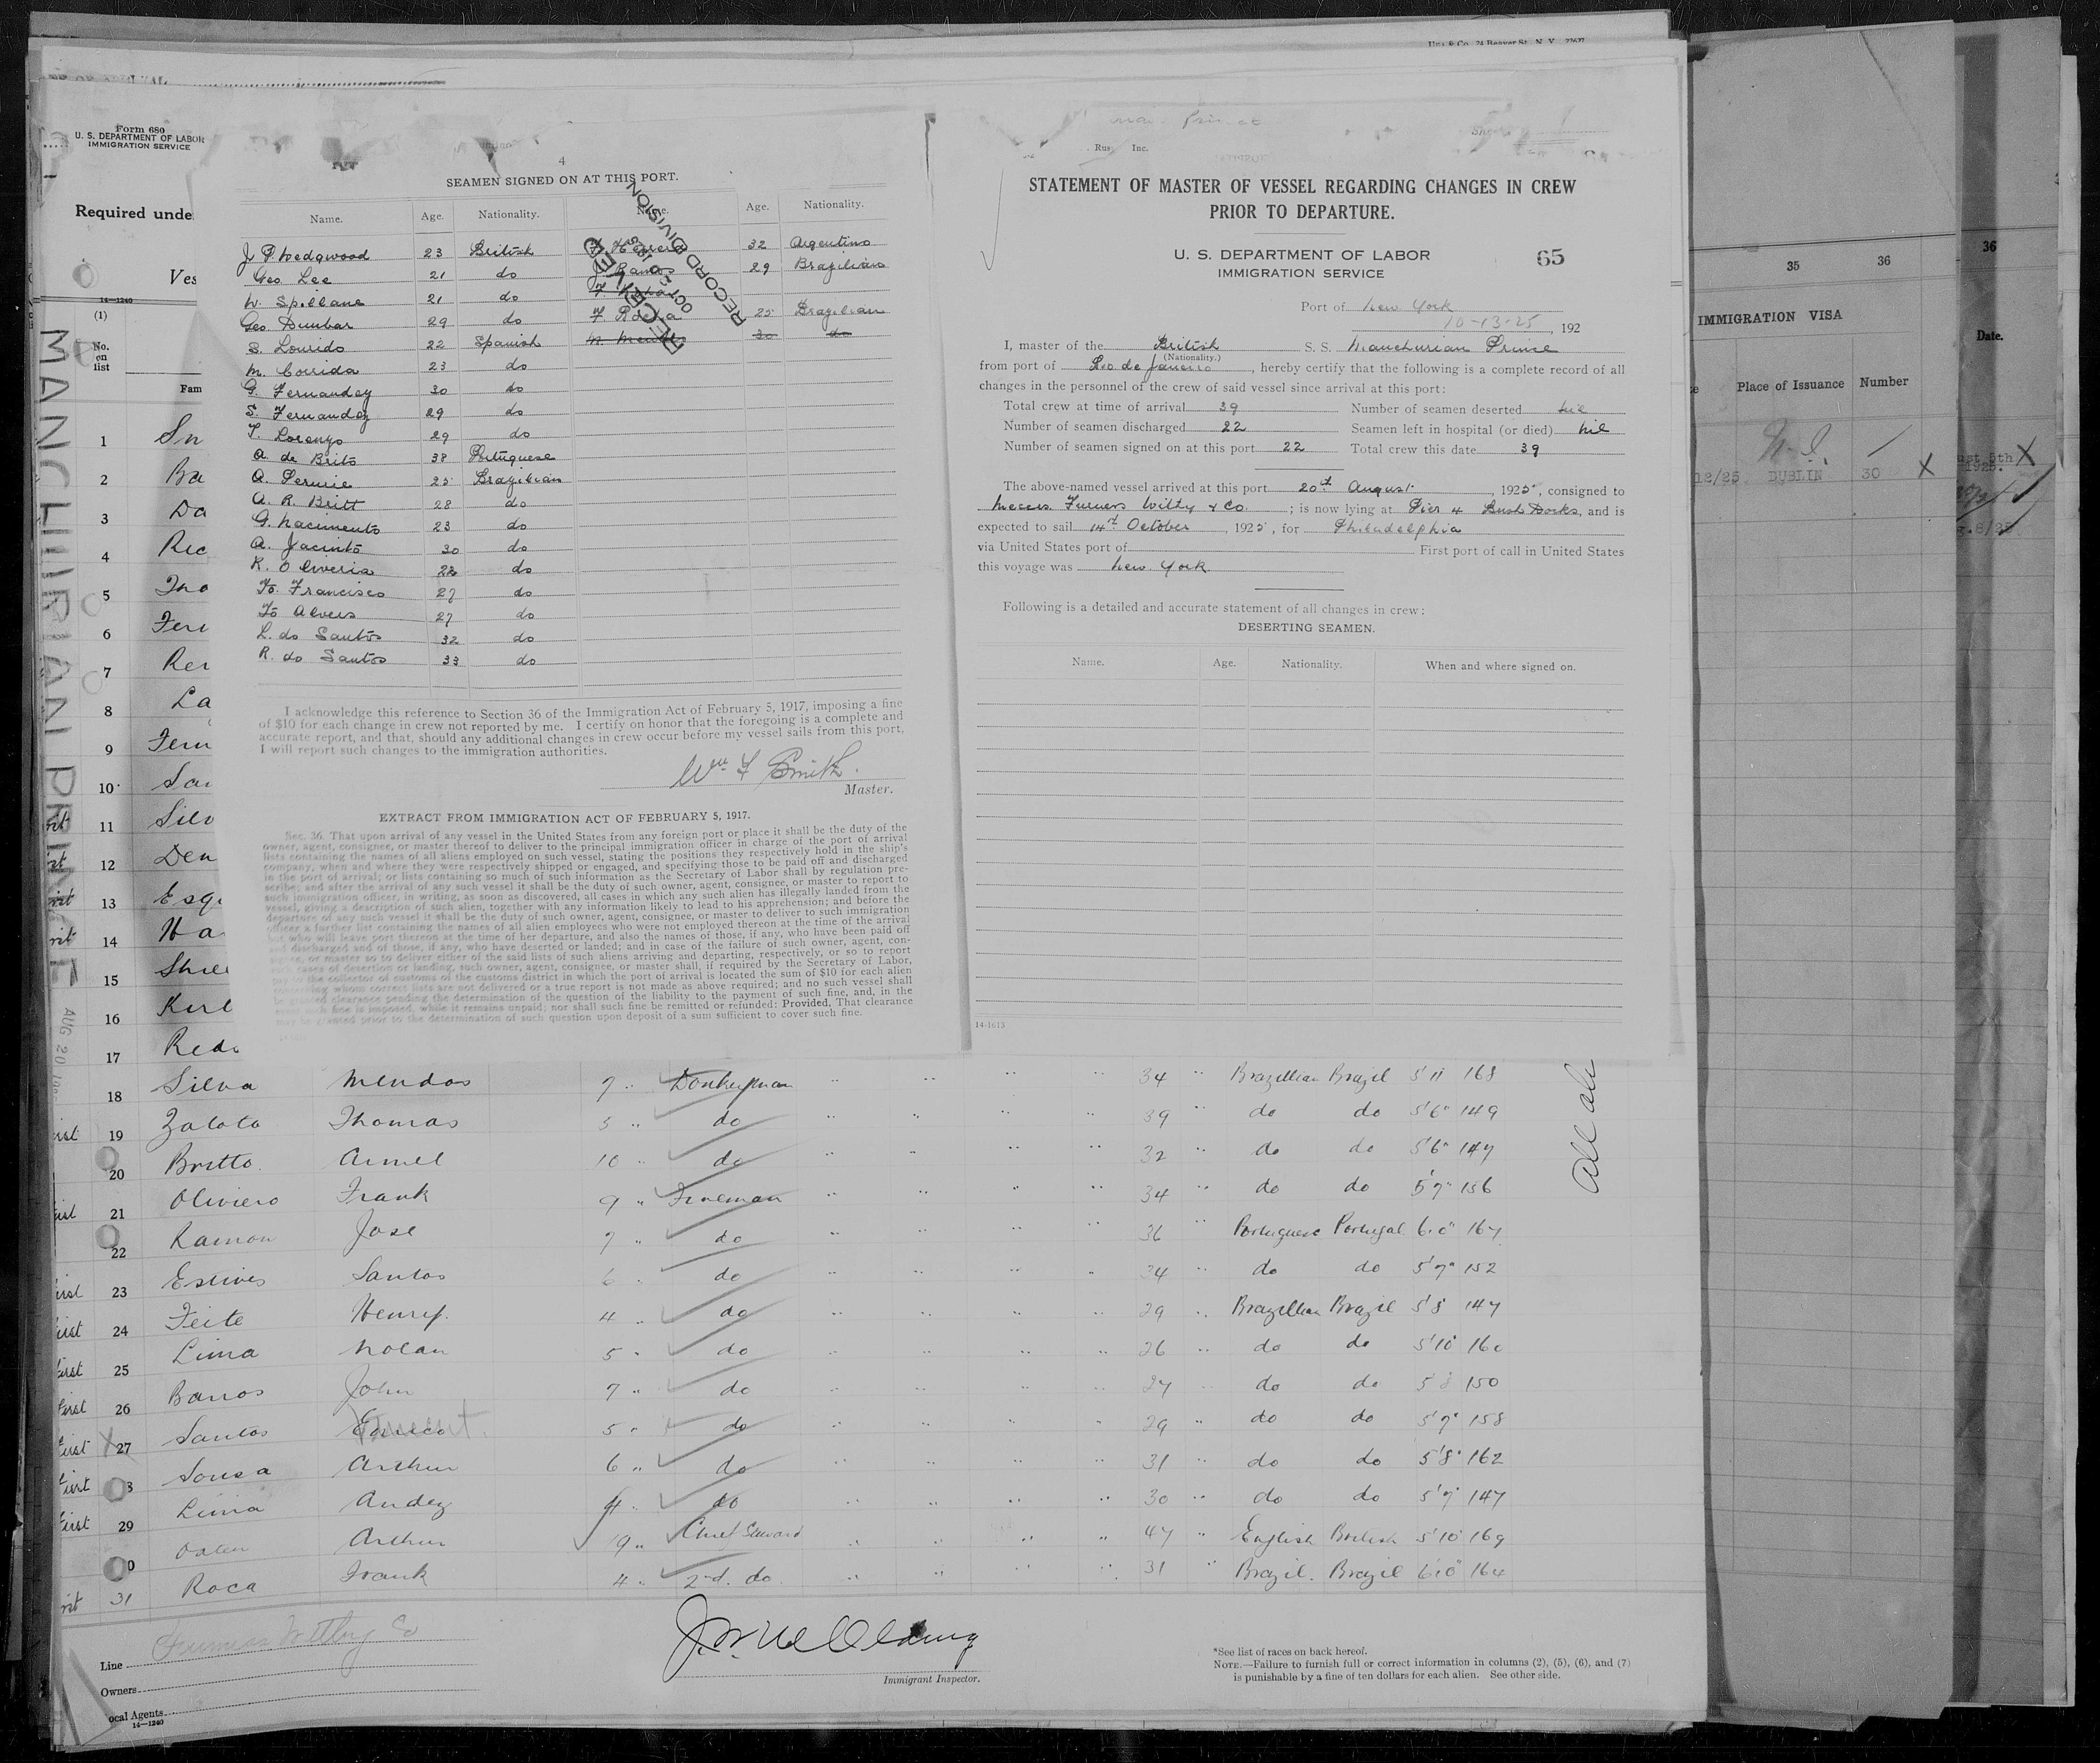 Form 680
U. S. DEPARTMENT OF LABOR
IMMIGRATION SERVICE
Required unde
Ves
14—1240
(1)
No.
on
list
Fam
MANCHURIAN PRINCE
AUG 20
4
SEAMEN SIGNED ON AT THIS PORT.
Name. Age. Nationality. Name. Age. Nationality.
J P Wedgwood 23 British 32 Argentino
Geo. Lee 21 do J Ramos 29 Brazilian
W. Spillane 21 do
Geo. Dunbar 29 do 25 Brazilian
S. Lourido 22 Spanish 30 do
M. Corrida 23 do
G. Fernandez 30 do
S. Fernandez 29 do
T. Lorenzo 29 do
A. de Brito 38 Portuguese
A. 25 Brazilian
A. R. Britt 28 do
G. Nacimento 23 do
A. Jacinto 30 do
R. Oliveria 22 do
Fo. Francisco 27 do
Fo Alvers 27 do
L. do Santos 32 do
R. do Santos 33 do
RECEIVED
OCT
RECORD DIVISION
I acknowledge this reference to Section 36 of the Immigration Act of February 5, 1917, imposing a fine
of $10 for each change in crew not reported by me. I certify on honor that the foregoing is a complete and
accurate report, and that, should any additional changes in crew occur before my vessel sails from this port,
I will report such changes to the immigration authorities.
Wm F Smith.
Master.
EXTRACT FROM IMMIGRATION ACT OF FEBRUARY 5, 1917.
Sec. 36. That upon arrival of any vessel in the United States from any foreign port or place it shall be the duty of the
owner, agent, consignee, or master thereof to deliver to the principal immigration officer in charge of the port of arrival
lists containing the names of all aliens employed on such vessel, stating the positions they respectively hold in the ship's
company, when and where they were respectively shipped or engaged, and specifying those to be paid off and discharged
in the port of arrival; or lists containing so much of such information as the Secretary of Labor shall by regulation pre-
scribe; and after the arrival of any such vessel it shall be the duty of such owner, agent, consignee, or master to report to
such immigration officer, in writing, as soon as discovered, all cases in which any such alien has illegally landed from the
vessel, giving a description of such alien, together with any information likely to lead to his apprehension; and before the
departure of any such vessel it shall be the duty of such owner, agent, consignee, or master to deliver to such immigration
officer a further list containing the names of all alien employees who were not employed thereon at the time of the arrival
but who will leave port thereon at the time of her departure, and also the names of those, if any, who have been paid off
and discharged and of those, if any, who have deserted or landed; and in case of the failure of such owner, agent, con-
signee, or master so to deliver either of the said lists of such aliens arriving and departing, respectively, or so to report
such cases of desertion or landing, such owner, agent, consignee, or master shall, if required by the Secretary of Labor,
pay to the collector of customs of the customs district in which the port of arrival is located the sum of $10 for each alien
concerning whom correct lists are not delivered or a true report is not made as above required; and no such vessel shall
be granted clearance pending the determination of the question of the liability to the payment of such fine, and, in the
event such fine is imposed, while it remains unpaid; nor shall such fine be remitted or refunded: Provided, That clearance
may be granted prior to the determination of such question upon deposit of a sum sufficient to cover such fine.
Inc.
STATEMENT OF MASTER OF VESSEL REGARDING CHANGES IN CREW
PRIOR TO DEPARTURE.
U. S. DEPARTMENT OF LABOR
IMMIGRATION SERVICE
65
Port of New York
10-13-25, 192
I, master of the British S. S. Manchurian Prince
(Nationality.)
from port of Rio de Janeiro, hereby certify that the following is a complete record of all
changes in the personnel of the crew of said vessel since arrival at this port:
Total crew at time of arrival 39 Number of seamen deserted nil
Number of seamen discharged 22 Seamen left in hospital (or died) nil
Number of seamen signed on at this port 22 Total crew this date 39
The above-named vessel arrived at this port 20th August, 1925, consigned to
Messrs Furness Withy & Co. ; is now lying at Pier 4 Bush Docks, and is
expected to sail 14th October, 1925, for Philadelphia
via United States port of First port of call in United States
this voyage was New York
Following is a detailed and accurate statement of all changes in crew:
DESERTING SEAMEN.
Name. Age. Nationality. When and where signed on.
14-1613
35 36
IMMIGRATION VISA
Place of Issuance Number
12/25 DUBLIN 30 X
36
Date.
ust 5th X
1925.
1 Sn
2 Ba
3 Da
4 Rec
5 Tho
6 Fer
7 Rer
8 La
9 Fern
10 San
11 Silv
12 Den
13 Esq
14 Ha
15 Shee
16 Kirl
17 Redo
18 Silva Mendos 7 " Donkeyman 34 " Brazillian Brazil 5'11 168
19 Zaloto Thomas 5 " do 39 " do do 5'6" 149
20 Britto Armel 10 " do 32 " do do 5'6" 147
21 Oliviero Frank 9 " Fireman 34 " do do 5'7" 156
22 Ramon Jose 7 " do 36 " Portuguese Portugal 6'0" 167
23 Estives Santos 6 " do 34 " do do 5'7" 152
24 Feite Henry. 4 " do 29 " Brazillian Brazil 5'8 147
25 Lima Nolan 5 " do 26 " do do 5'10 160
26 Barros John 7 " do 27 " do do 5'8 150
27 Santos 5 " do 29 " do do 5'7" 158
Sousa Arthur 6 " do 31 " do do 5'8" 162
29 Lima Andez 4 " do 30 " do do 5'7" 147
Arthur 9 " Chief Steward 47 " English British 5'10" 169
31 Roca Frank 4 " 2nd. do 31 " Brazil. Brazil 6'0" 164
Line Furness Withy Co
Owners
ocal Agents
14—1240
Immigrant Inspector.
*See list of races on back hereof.
NOTE.—Failure to furnish full or correct information in columns (2), (5), (6), and (7)
is punishable by a fine of ten dollars for each alien. See other side.